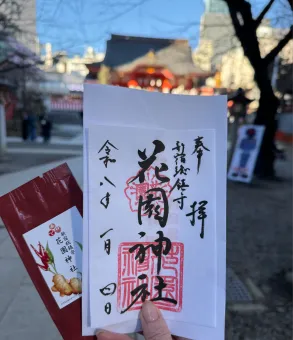 奉拝
新宿総鎮守
花園神社
令和八年一月四日
花園神社